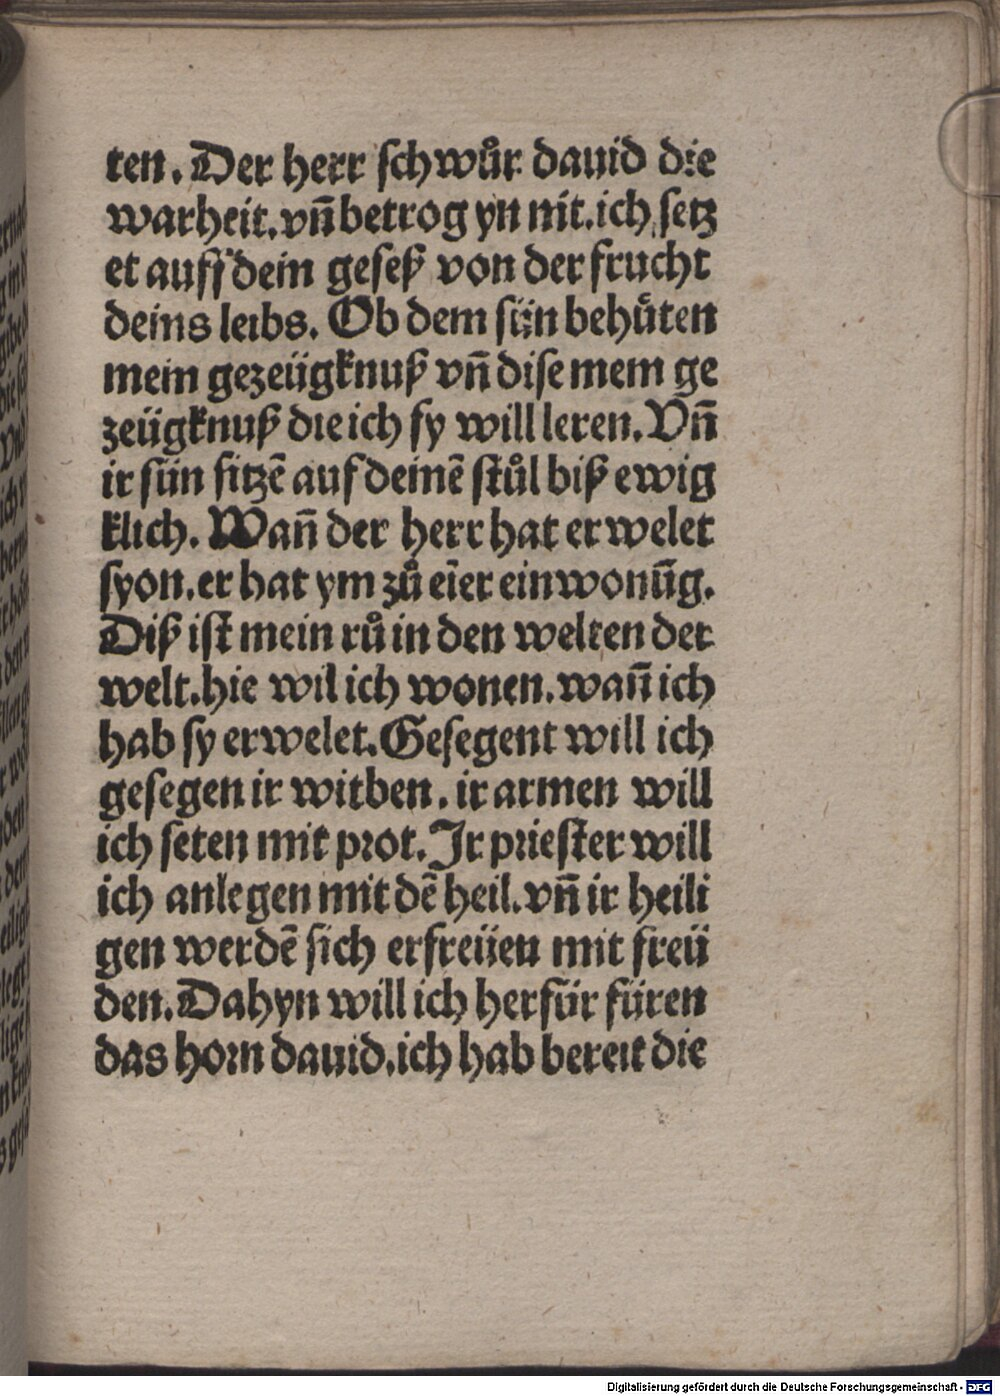 ten. Der herr schwůr dauid die
warheit. vn̄ betrog yn nit. ich setz
et auff dein geseß von der frucht
deins leibs. Ob dem sün behuͤten
mein gezeügknuß vn̄ dise mein ge
zeügknuß die ich sy will leren. Vn̄
ir sün sitzē auf deinē stůl biß ewig
klich. Wan̄ der herr hat erwelet
syon. er hat ym zů eīer einwonūg.
Diß ist mein rů in den welten der
welt. hie wil ich wonen. wan̄ ich
hab sy erwelet. Gesegent will ich
gesegen ir witben. ir armen will
ich seten mit prot. Ir priester will
ich anlegen mit dē heil. vn̄ ir heili
gen werdē sich erfreüen mit freü
den. Dahyn will ich herfür füren
das horn dauid. ich hab bereit die
Digitalisierung gefördert durch die Deutsche Forschungsgemeinschaft - DFG